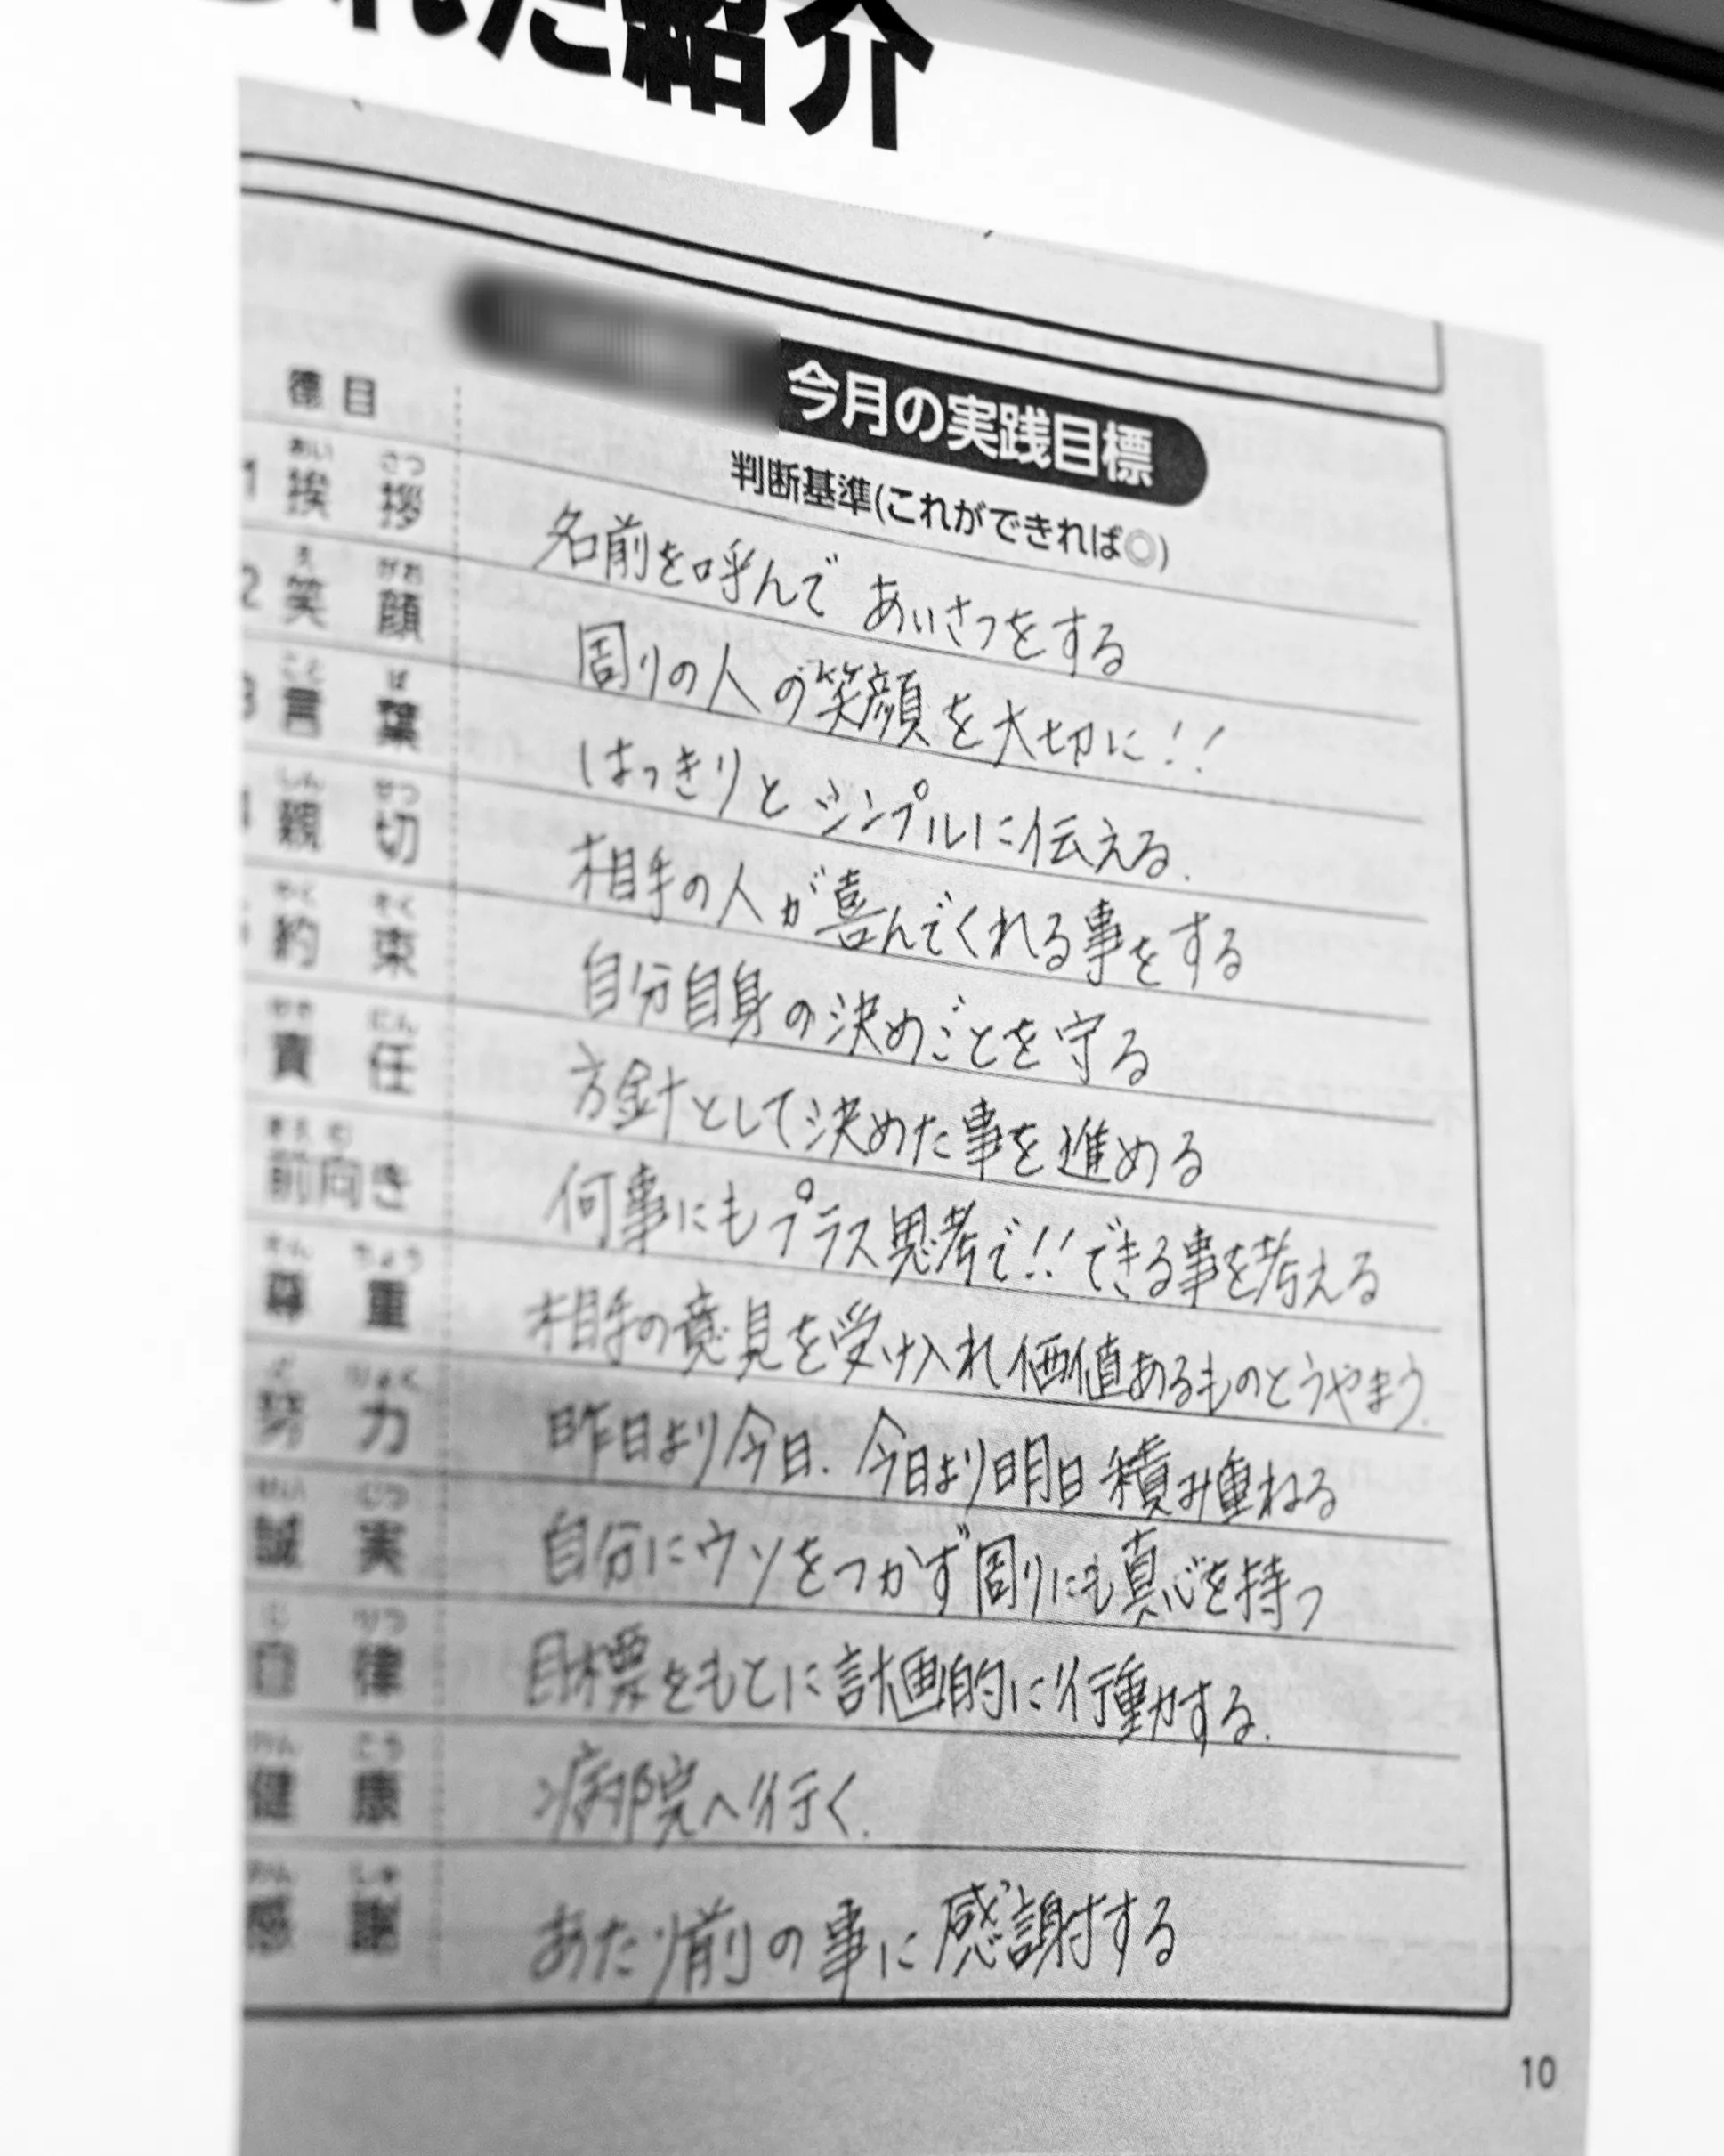 れた紹介
今月の実践目標
徳目
判断基準(これができれば◎)
あい さつ
1 挨拶 名前を呼んで あいさつをする
え がお
2 笑顔 周りの人の笑顔を大切に!!
こと ば
3 言葉 はっきりと シンプルに伝える.
しん せつ
4 親切 相手の人が喜んでくれる事をする
やく そく
約束 自分自身の決めごとを守る
せき にん
責任 方針として決めた事を進める
まえ む
前向き 何事にもプラス思考で!! できる事を考える
そん ちょう
尊重 相手の意見を受け入れ価値あるものとうやまう.
ど りょく
努力 昨日より今日. 今日より明日 積み重ねる
せい じつ
誠実 自分にウソをつかず 周りにも真心を持つ
じ りつ
自律 目標をもとに計画的に行動する.
けん こう
健康 病院へ行く.
かん しゃ
感謝 あたり前の事に感謝する
10